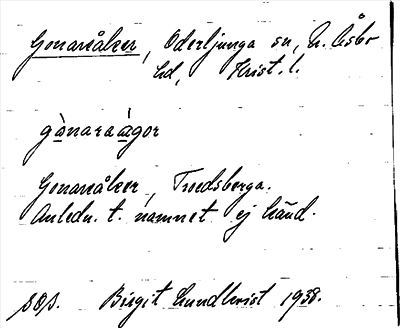 Gonarsåker, Oderljunga sn, N. Åsbo
hd, Krist. l.
gànaraágor
Gonarsåker, Truedsberga.
Anledn. t. namnet ej känd.
sep. Birgit Lundkvist 1938.